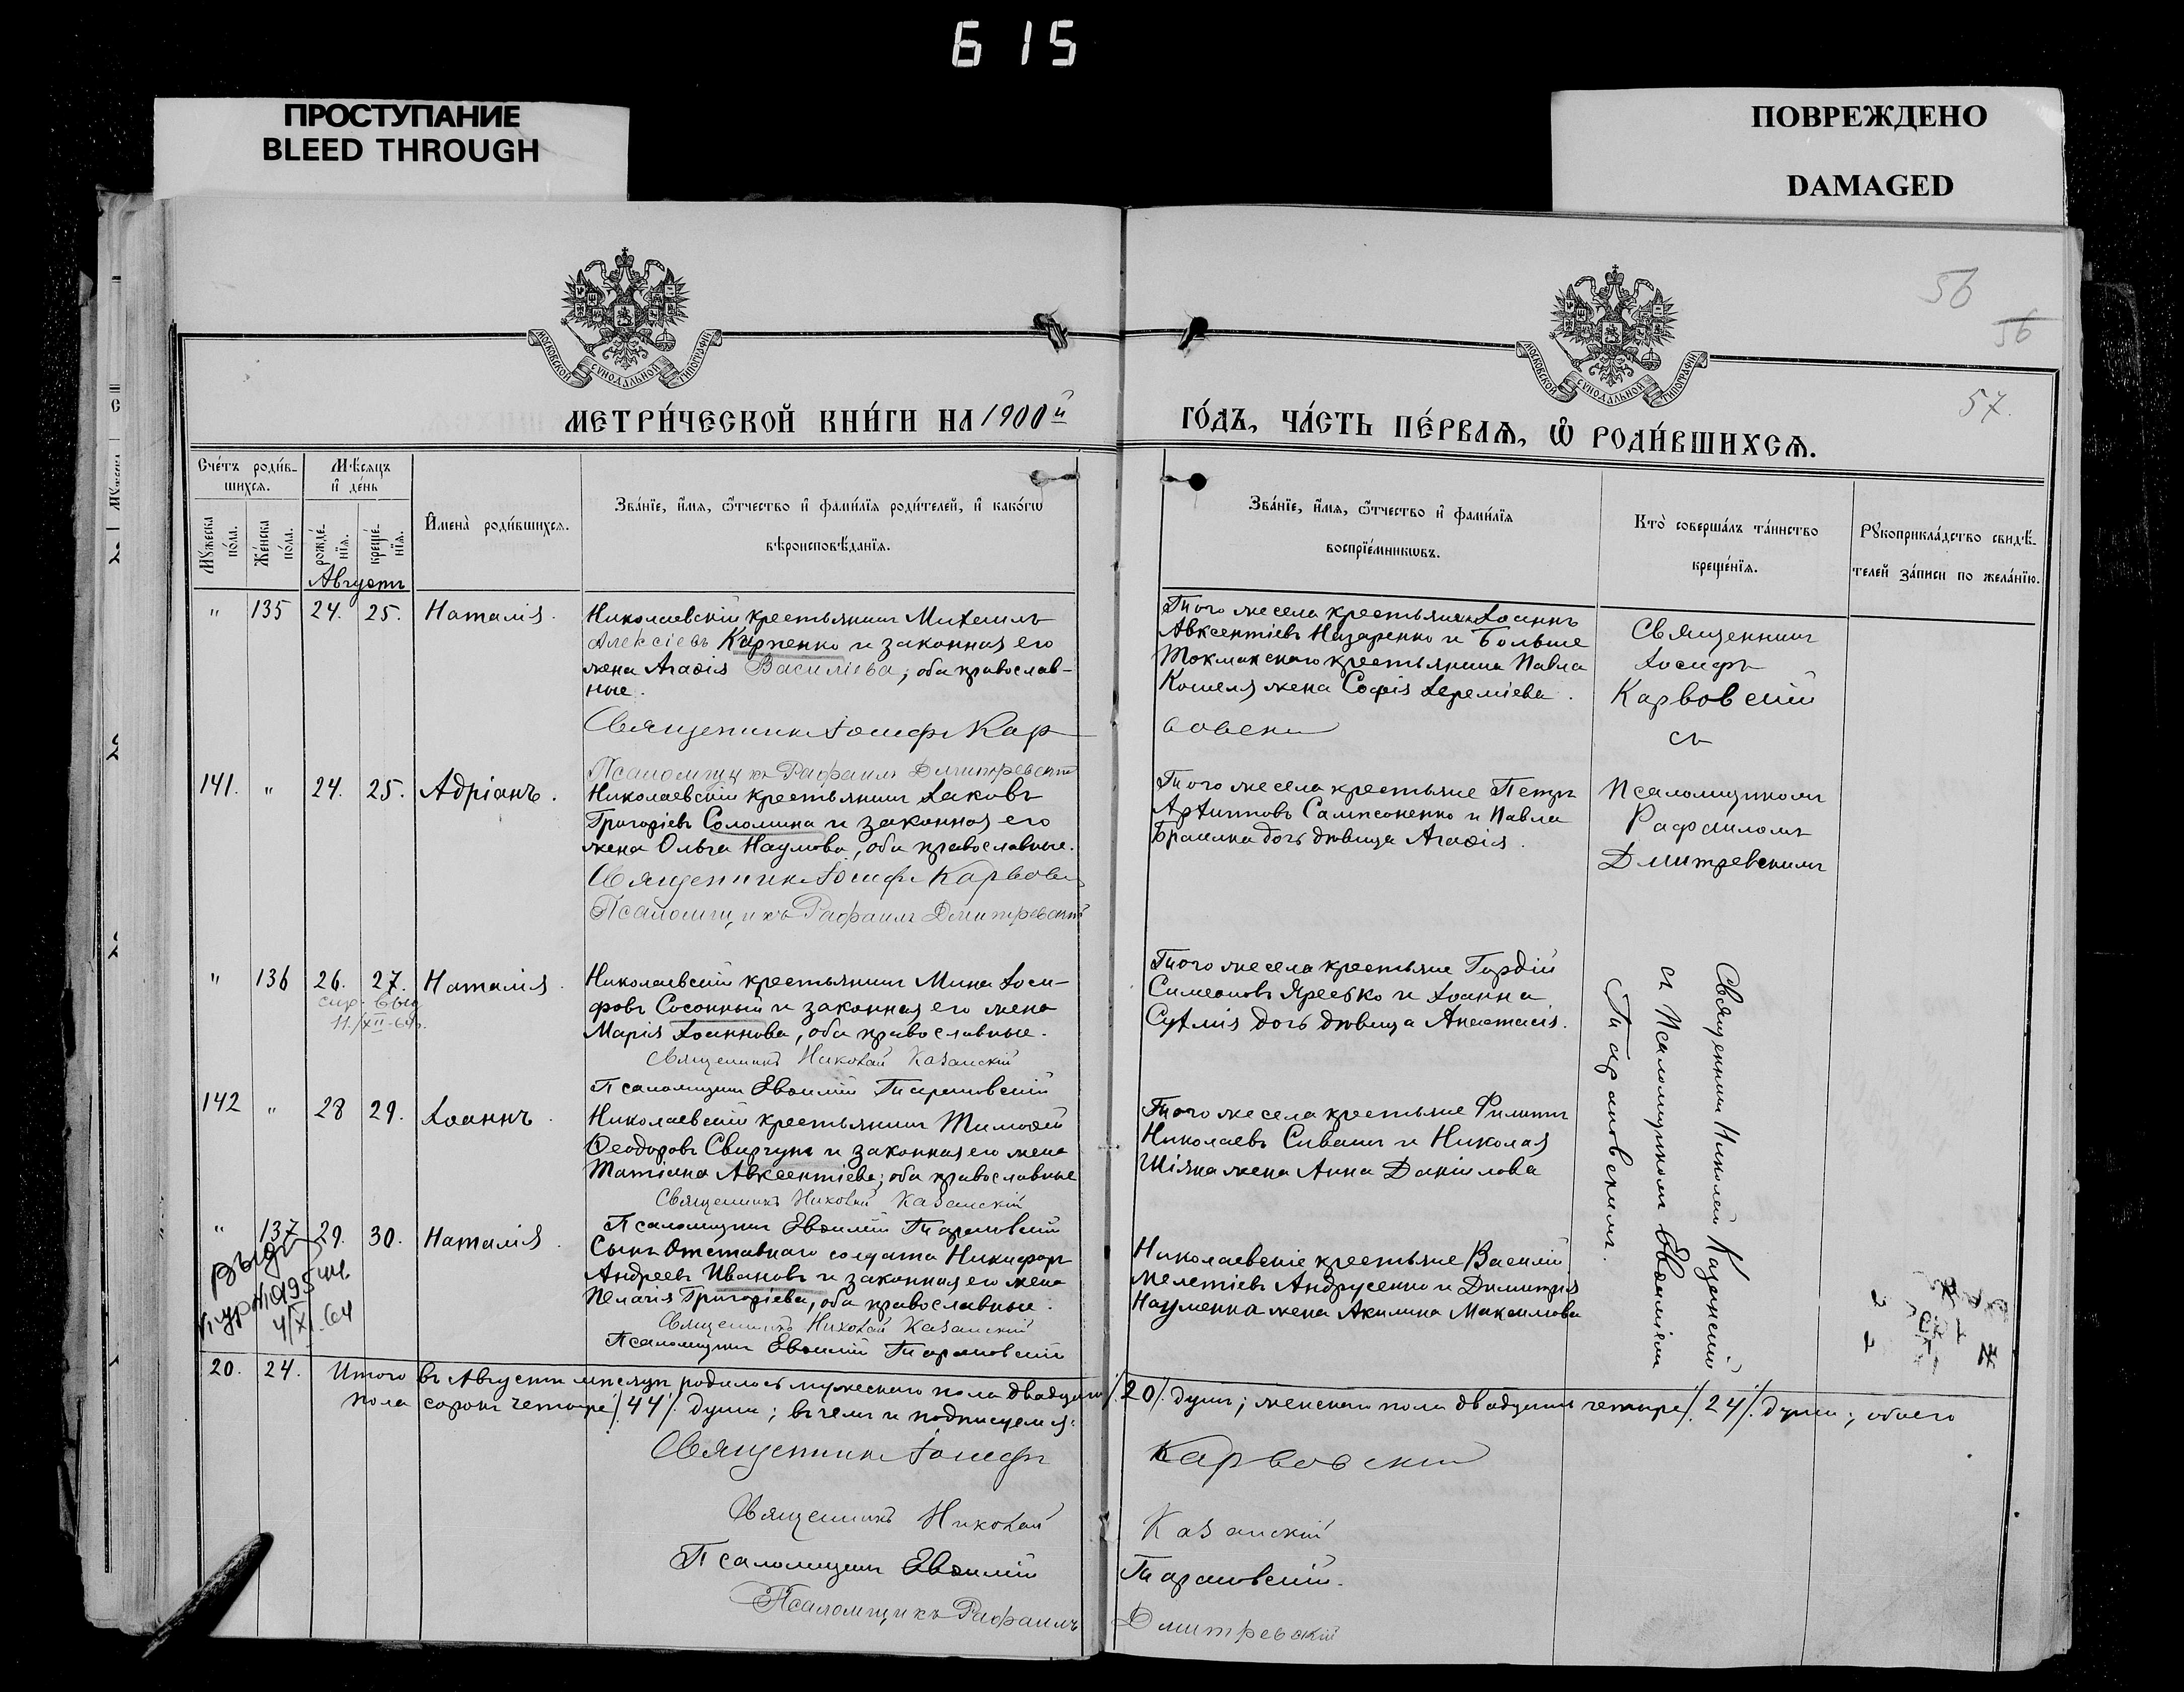 615
ПРОСТУПАНИЕ
BLEED THROUGH
ПОВРЕЖДЕНО
DAMAGED
56
56
57.
МОСКОВСКОЙ СУНОДАЛЬНОЙ ТИПОГРАФІИ
МОСКОВСКОЙ СУНОДАЛЬНОЙ ТИПОГРАФІИ
МЕТРИ́ЧЕСКОЙ КНИ́ГИ НА 1900й
ГО́ДЪ, ЧА́СТЬ ПЕ́РВАѦ, Ѽ РОДИ́ВШИХСѦ.
Сче́тъ роди́в-
шихсѧ.
Мѣ́сѧцъ
и҆ де́нь
Мꙋ́жеска
по́ла.
Же́нска
по́ла.
рожде́-
нїѧ.
креще́-
нїѧ.
Августъ
И҆мена̀ роди́вшихсѧ.
Зва́нїе, и҆́мѧ, ѻ҆́тчество и҆ фами́лїѧ роди́телей, и҆ како́гѡ
вѣроисповѣ́данїѧ.
Зва́нїе, и҆́мѧ, ѻ҆́тчество и҆ фами́лїѧ
воспрїе́мникѡвъ.
Кто̀ соверша́лъ та́инство
креще́нїѧ.
Рꙋкоприкла́дство свидѣ́-
телей за́писи по жела́нїю.
" 135 24. 25. Наталія.
Николаевскій крестьянинъ Михаилъ
Алексіевъ Карпенко и законная его
жена Агаѳія Василіева; оба православ-
ные.
Священникъ Іосифъ Кар
вовскі
Псаломщикъ Рафаилъ Дмитревскій
Того же села крестьянинъ Іоаннъ
Авксентіевъ Назаренко и Больше
Токмакскаго крестьянина Павла
Кошеля жена Софія Іереміева.
Священникъ
Іосифъ
Карвовскій
съ
Псаломщикомъ
Рафаиломъ
Дмитревскимъ
141. " 24. 25. Адріанъ.
Николаевскій крестьянинъ Іаковъ
Григоріевъ Соломина и законная его
жена Ольга Наумова, оба православные.
Священникъ Іосифъ Карвовс
Псаломщикъ Рафаилъ Дмитревскій
Того же села крестьяне Петръ
Архиповъ Самсоненко и Павла
Браилка дочь дѣвица Агаѳія.
" 136 26. 27. Наталія.
11./XII-64г.
Николаевскій крестьянинъ Мина Іоси-
фовъ Сосонный и законная его жена
Марія Іоаннова, оба православные.
Священникъ Николай Казанскій
Псаломщикъ Евѳимій Тарановскій
Того же села крестьяне Гордій
Симеоновъ Яресько и Іоанна
дочь дѣвица Анастасія.
Священникъ Николай Казанскій
съ Псаломщикомъ Евѳиміемъ
Тарановскимъ.
142 " 28 29. Іоаннъ.
Николаевскій крестьянинъ Тимоѳей
Ѳеодоровъ Свиргунъ и законная его жена
Татіана Авксентіева; оба православные
Священникъ Николай Казанскій
Псаломщикъ Евѳимій Тарановскій
Того же села крестьяне Филиппъ
Николаевъ Сивашъ и Николая
Шіяна жена Анна Даніилова
" 137 29. 30. Наталія.
4/XI.64
Сынъ отставнаго солдата Никифоръ
Андреевъ Ивановъ и законная его жена
Пелагія Григоріева, оба православные.
Священникъ Николай Казанскій
Псаломщикъ Евѳимій Тарановскій
Николаевскіе крестьяне Василій
Мелетіевъ Андрусенко и Димитрія
Науменка жена Акилина Максимова
20. 24. Итого въ Августѣ мѣсяцѣ родилось мужескаго пола двадцать /.20/. душъ; женскаго пола двадцать четыре /.24/. души; обоего
пола сорокъ четыре /.44/. души; въ чемъ и подписуемся:
Священникъ Іосифъ Карвовскій
Священникъ Николай Казанскій
Псаломщикъ Евѳимій Тарановскій.
Псаломщикъ Рафаилъ Дмитревскій